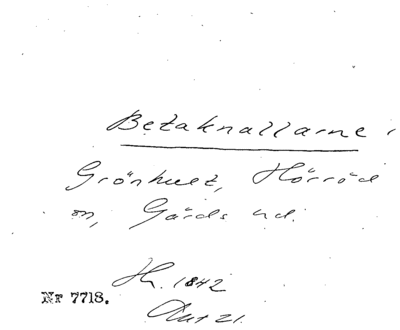 Betaknallarne i
Grönhult, Hörröd
sn, Gärds hd.
Hh. 1842
Nr 7718.